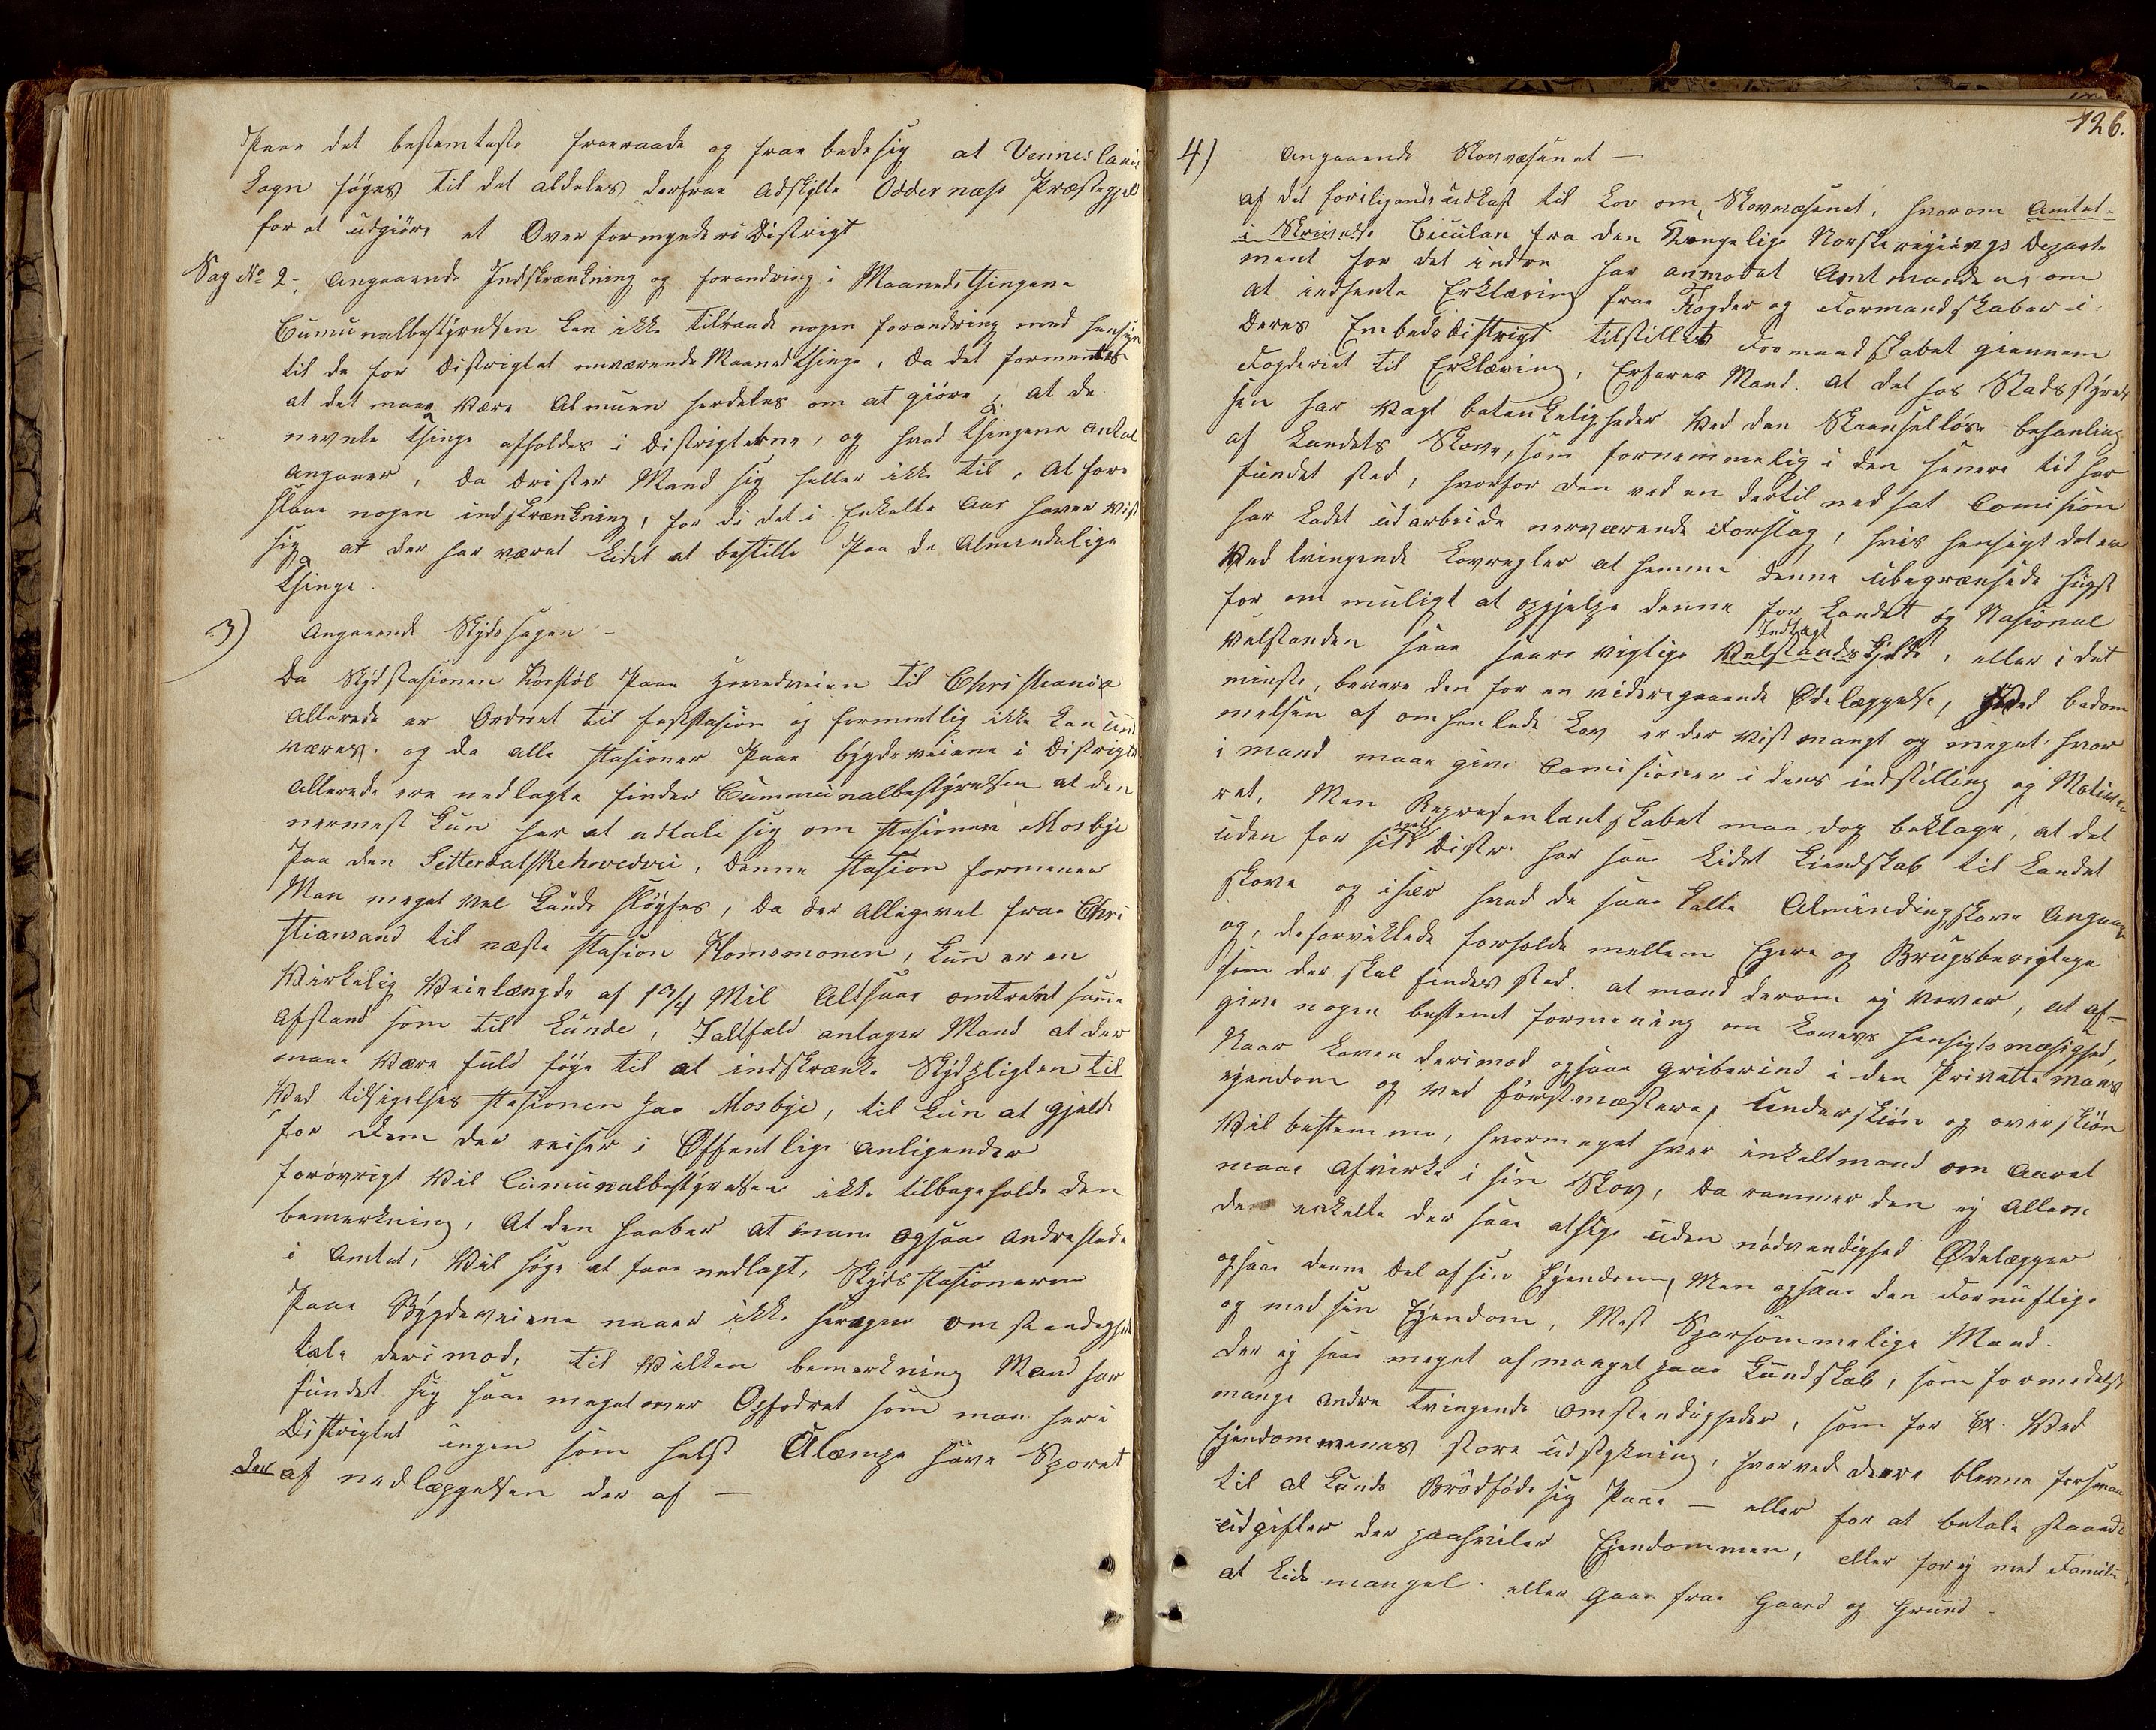 Paae det bestemteste fraeraade og frae bede sig at Venneslands
Sogn føges til det aldeles derfrae adskilte Oddernæss Præstegjeld
for at udgiöre et Overformynderi Distrigt
Sag No 2, Angaaende Indskrænkning og forandring i Maanedsthingene
Cumunalbestyrelsen kan ikke tilraade nogen forandring med hensyn
til de for Distrigtet nuværende Maanedsthinge, da det formenes
at det maae være Almuen herdeles om at giöre, at de
nevnte Thinge afholdes i Distrigterne, og hvad Thingene Antal
angaaer, da drister Mand sig heller ikke til, at fore
slaae nogen indskrænkning, for di det i Enkelte Aar haver vist
sig at der har været Lidet at bestille Paa de Almindelige
Thinge.
3) Angaaende Skydssagen –
Da Skydstasionen Korsløb Paae Hovedveien til Christiania
Allerede er Ordnet til faststasion og formentlig ikke kan und
væres. og da alle stasioner Paae bygdeveiene i Distrigtet
Allerede ere nedlagte finder Cummunalbestyrelsen at den
nermest kun har at udtale sig om stasionen Mosbye
Paa den Setterdalske hovedvei, denne stasion formener
Man meget vel kunde sløyfes, da der alligevel frae Chri
stiansand til næste stasion Homsmoen, kun er en
Virkelig Veielængde af 1 3/4 Mil Altsaae omtrent samme
afstand som til Lunde, Ialtfald antager Mand at der
maae være fuld føye til at indskrænke Skydspligten til
ved tilsigelses stasionen paa Mosbye, til kun at gjelde
for dem der reiser i Offentlige anligender
forövrigt Vil Cumunalbestyrelsen ikke tilbageholde den
bemerkning, At den haaber at man ogsaae andre steder
i Amtet, Vil søge at faae nedlagt, Skydsstasionerne
Paae Bygdeveiene naaer ikke særegne omstendighed
tale derimod, til vilken bemerkning Mand har
fundet sig saae meget mer Opfodret som man her i
Distrigtet ingen som helst Ulæmpe have Sporet
der af nedleggelsen der af –
126.
4) Angaaende Skovvæsenet –
af det foreligende udkast til Lov om Skovvæsenet, hvorom Amtet-
i Skrivelse Circulær fra den Kongelige Norske regierings Departe
ment for det indre har anmodet Amtmændene, om
at indhente Erklæring frae Fogder og Formandskaber i
Deres Embedsdistrigt tilstillet Formandskabet giennem
Fogderiet til Erklæring, Erfarer Mand. at det hos Stadsstyrel
sen har vagt betenkeligheder Ved den Skaanselløse behanling
af Landets Skove, som fornemmelig i den senere tid har
fundet sted, hvorfor den ved en dertil nedsat Comision
har Ladet udarbeide nerværende Forslag, hvis hensigt det er
Ved tvingende Lovregler at hemme denne ubegrænsede hugst
for om muligt at opjelpe denne for Landet og Nasional
velstanden saae saare vigtige Velstands Indtægt kjelde, eller i det
minste, bevare den for en videregaaende Ødelæggelse, Ved bedöm
melsen af omhanlede Lov er der vist mangt og meget, hvor
i mand maae give Comisionen i dens indstilling og Motiver
ret, Men Representantskabet maa dog beklage, at det
uden for sit eget Distr. har saae Lidet Kiendskab til Landet
skove og især hvad de saae kalte Almindingskove Angaaer
og, de forviklede forholde mellem Eyere og Brugsberigtigede
som der skal findes sted. at mand derom ey vover, at af-
give nogen bestemt formening om Lovens hensigtsmæsighed,
Naar Loven derimod ogsaae griberind i den Privatte mans
eyendom og ved forstmæstere, Underskiön og overskiön
Vil bestemme, hvormeget hver enkeltmand om Aaret
maae Afvirke i sin Skov, da rammer den ey Allene
de enkelte der saae atsige uden nödvendighed Ødelægger
ogsaae denne Del af sin Eyendom, Men ogsaae den Fornuftige
og med sin Eyendom, Mest Sparsommelige Mand.
der ey saae meget af mangel paae Kundskab, som formedelst
mange andre tvingende omstendigheder, som for Ex. Ved
Ejendommenes store udstykning, hvorved denne bleven forsmaa
til at kunde Brödföde sig Paae – eller for at betale staaende
udgifter der paahviler Ejendommen, eller for ey med Familie
at Lide mangel. eller gaae frae Gaard og Grund –